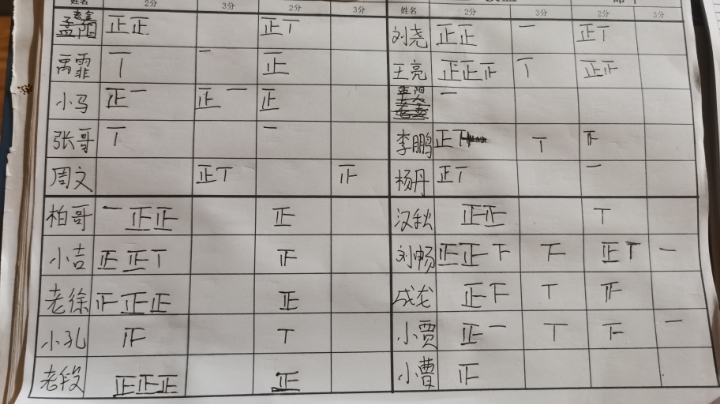 姓名 2分 3分 2分 3分 姓名 2分 3分 2分 3分
孟阳 正正 正丅 刘尧 正正 一 正丅
禹霏 丅 一 正 王亮 正正正 丅 正正
小马 正一 正一 正 一
张哥 丅 一 李鹏 正 丅
周文 正丅 杨丹 正丅 一
柏哥 一正正 正 汉秋 正正 丅
小吉 正正丅 刘畅 正正 正丅 一
老徐 正正 正 成龙 正 丅
小孔 丅 小贾 正一 丅 一
老段 正正正 正 小曹